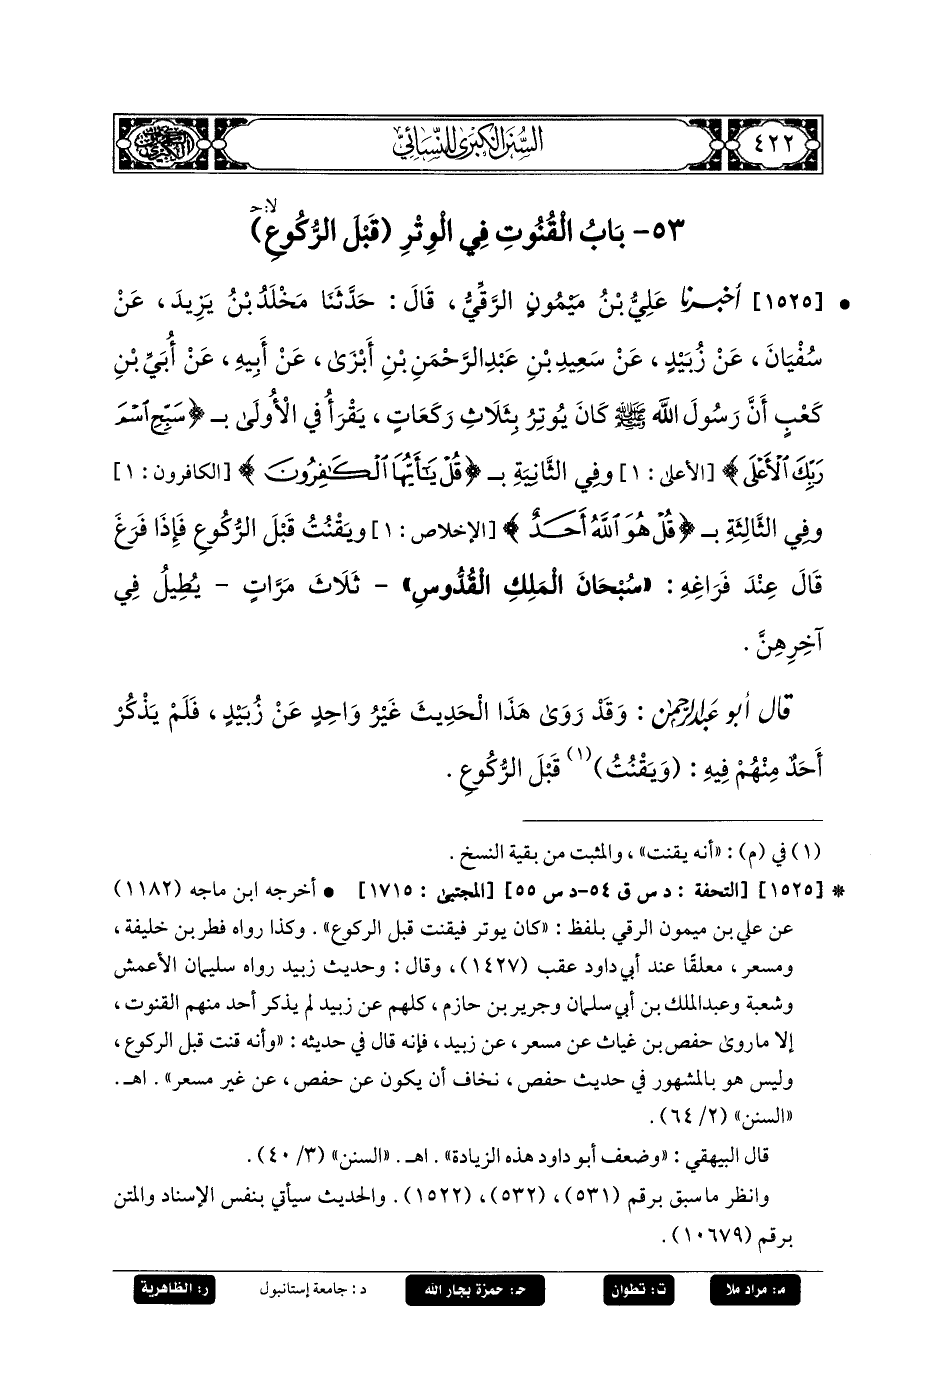 ٤٢٢
السُّنَنُ الكُبْرَىٰ لِلنَّسَائِيِّ
لا: حـ
٥٣- بَابُ الْقُنُوتِ فِي الْوِتْرِ (قَبْلَ الرُّكُوعِ)
• [١٥٢٥] أخبرنا عَلِيُّ بْنُ مَيْمُونٍ الرَّقِّيُّ ، قَالَ : حَدَّثَنَا مَخْلَدُ بْنُ يَزِيدَ ، عَنْ
سُفْيَانَ ، عَنْ زُبَيْدٍ ، عَنْ سَعِيدِ بْنِ عَبْدِالرَّحْمَنِ بْنِ أَبْزَىٰ ، عَنْ أَبِيهِ ، عَنْ أُبَيِّ بْنِ
كَعْبٍ أَنَّ رَسُولَ اللَّهِ ﷺ كَانَ يُوتِرُ بِثَلَاثِ رَكَعَاتٍ ، يَقْرَأُ فِي الْأُولَىٰ بِـ ﴿سَبِّحِ ٱسْمَ
رَبِّكَ ٱلْأَعْلَى﴾ [الأعلى : ١] وَفِي الثَّانِيَةِ بِـ ﴿قُلْ يَٰٓأَيُّهَا ٱلْكَٰفِرُونَ﴾ [الكافرون : ١]
وَفِي الثَّالِثَةِ بِـ ﴿قُلْ هُوَ ٱللَّهُ أَحَدٌ﴾ [الإخلاص : ١] وَيَقْنُتُ قَبْلَ الرُّكُوعِ فَإِذَا فَرَغَ
قَالَ عِنْدَ فَرَاغِهِ : «سُبْحَانَ الْمَلِكِ الْقُدُّوسِ» - ثَلَاثَ مَرَّاتٍ - يُطِيلُ فِي
آخِرِهِنَّ .
قال أبو عبدالرحمن : وَقَدْ رَوَىٰ هَذَا الْحَدِيثَ غَيْرُ وَاحِدٍ عَنْ زُبَيْدٍ ، فَلَمْ يَذْكُرْ
أَحَدٌ مِنْهُمْ فِيهِ : (وَيَقْنُتُ)(١) قَبْلَ الرُّكُوعِ .
(١) في (م) : «أنه يقنت» ، والمثبت من بقية النسخ .
* [١٥٢٥] [التحفة : د س ق ٥٤-د س ٥٥] [المجتبىٰ : ١٧١٥] • أخرجه ابن ماجه (١١٨٢)
عن علي بن ميمون الرقي بلفظ : «كان يوتر فيقنت قبل الركوع» . وكذا رواه فطر بن خليفة ،
ومسعر ، معلقًا عند أبي داود عقب (١٤٢٧) ، وقال : وحديث زبيد رواه سليمان الأعمش
وشعبة وعبدالملك بن أبي سليمان وجرير بن حازم ، كلهم عن زبيد لم يذكر أحد منهم القنوت ،
إلا ما روىٰ حفص بن غياث عن مسعر ، عن زبيد ، فإنه قال في حديثه : «وأنه قنت قبل الركوع ،
وليس هو بالمشهور في حديث حفص ، نخاف أن يكون عن حفص ، عن غير مسعر» . اهـ .
«السنن» (٢/ ٦٤) .
قال البيهقي : «وضعف أبو داود هذه الزيادة» . اهـ . «السنن» (٣/ ٤٠) .
وانظر ما سبق برقم (٥٣١) ، (٥٣٢) ، (١٥٢٢) . والحديث سيأتي بنفس الإسناد والمتن
برقم (١٠٦٧٩) .
مـ: مراد ملا   ت: تطوان   حـ: حمزة بجار الله   د: جامعة إستانبول   ر: الظاهرية